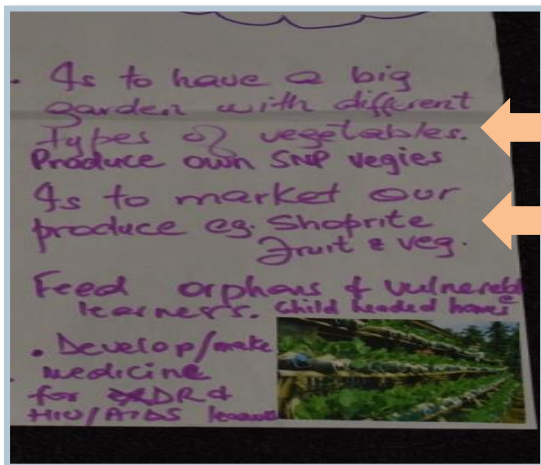 . Is to have a big
garden with different
Types of vegetables.
Produce own SNP vegies
Is to market our
produce eg. Shoprite
Fruit & veg.
Feed orphans & vulnerable
learners. Child headed homes
. Develop/make
medicine
for DR &
HIV/AIDS